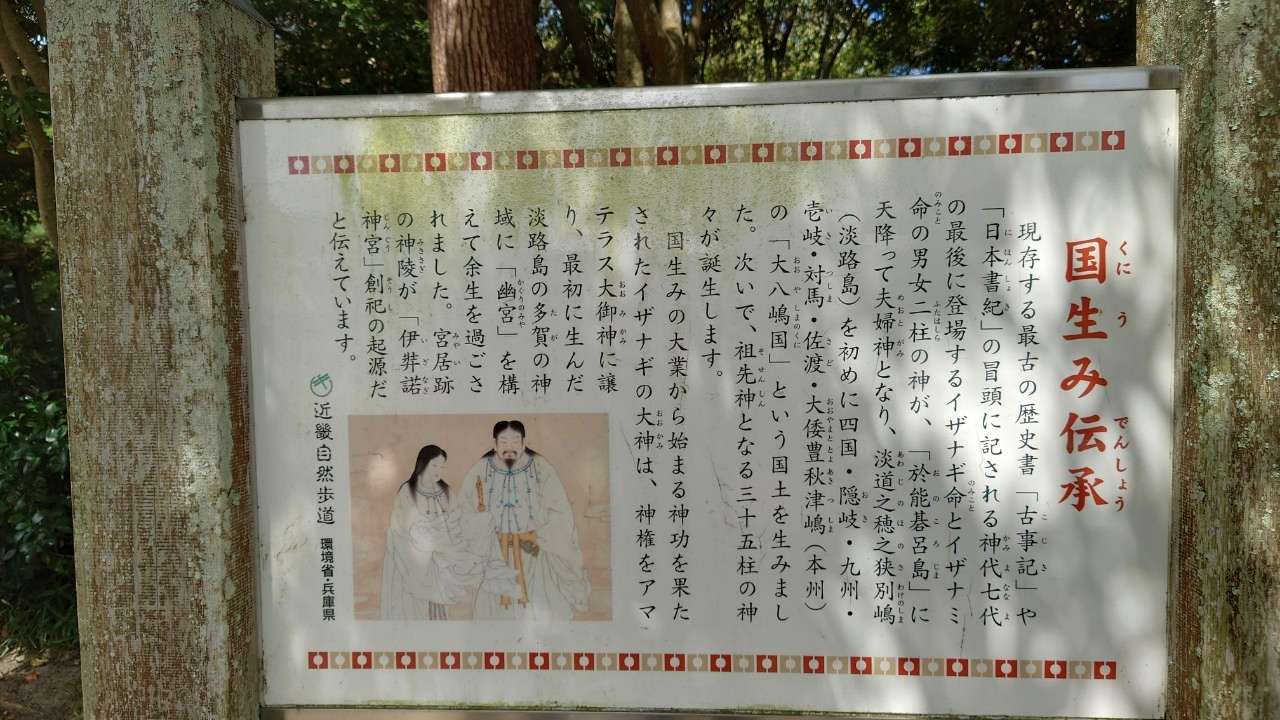 国生み伝承
現存する最古の歴史書「古事記」や
「日本書紀」の冒頭に記される神代七代
の最後に登場するイザナギ命とイザナミ
命の男女二柱の神が、「於能碁呂島」に
天降って夫婦神となり、淡道之穂之狭別嶋
(淡路島)を初めに四国・隠岐・九州・
壱岐・対馬・佐渡・大倭豊秋津嶋(本州)
の「大八嶋国」という国土を生みまし
た。次いで、祖先神となる三十五柱の神
々が誕生します。
国生みの大業から始まる神功を果た
されたイザナギの大神は、神権をアマ
テラス大御神に譲
り、最初に生んだ
淡路島の多賀の神
域に「幽宮」を構
えて余生を過ごさ
れました。宮居跡
の神陵が「伊弉諾
神宮」創祀の起源だ
と伝えています。
近畿自然歩道 環境省・兵庫県